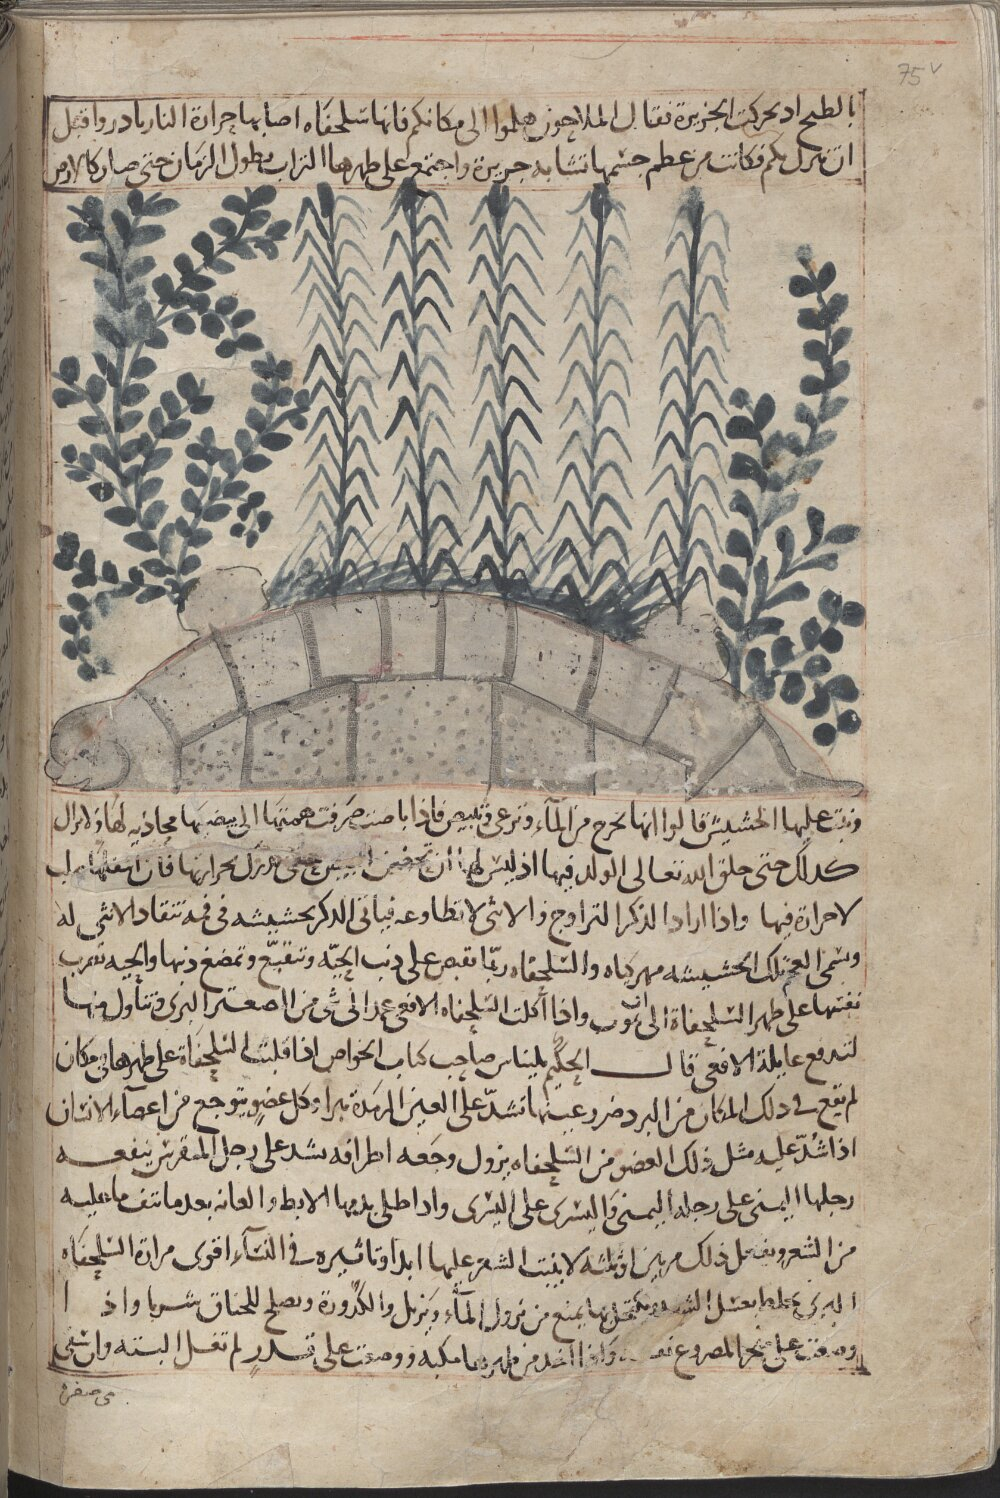 75v
بالطبخ اذ تحركت الجزيرة فقال الملاحون هلموا الى مكانكم فانها سلحفاه اصابها حرارة النار بادروا قبل
ان تنزل بكم فكانت من عظم جسمها تشابه جزيرة واجتمع على ظهرها التراب بطول الزمان حتى صار كالارض
ونبت عليها الحشيش قالوا انها تخرج من المآء وترعى وتبيض فاذا باضت صرفت همتها الى بيضها محاذيه لها ولا تزال
كذلك حتى خلق الله تعالى الولد فيها اذ ليس لها ان تحضن البيض حتى بحرارتها فان اسفلها صلب
لا حرارة فيها واذا اراد الذكر التزاوج والانثى لا تطاوعه فياتى الذكر بحشيشه فى فمه تنقاد الانثى له
وتسمى العجم تلك الحشيشه مهركياه والسلحفاه ربما تقبض على ذنب الحيّة وتمضغ ذنبها والحيه تضرب
نفسها على ظهر السلحفاة الى ان تموت واذا أكلت السلحفاه الافعى عمد الى شى من الصعتر البرى وتناول منها
لتدفع غايلة الافعى قال الحكيم بليناس صاحب كتاب الخواص اذا قلبت السلحفاة على ظهرها فى مكان
لم يقع فى ذلك المكان من البرد ضرر وعينها تشدّ على العين الرمدة تبرا وكل عضو يتوجع من اعضاء الانسان
اذا شدّ عليه مثل ذلك العضو من السلحفاه يزول وجعه اطرافه تشد على رجل المنقرس ينفعه
رجلها اليمنى على رجله اليمنى واليسرى على اليسرى واذا طلى بدمها الابط والعانه بعد ما نتف ما عليه
من الشعر ويفعل ذلك مرتين او ثلثه لا ينبت الشعر عليها ابدا وتاثيره فى النسآء اقوى مرارة السلحفاه
البرى تخلط بعسل الشهد يكتحل بها يمنع من نزول المآء ويزيل والكدورة ويصلح للخناق شربا واذا
وضعت على منخر المصروع نفعه واذا اخذ من ظهرها مكبه ووضعت على قدر لم تغل البته وان سقى
من صفرة